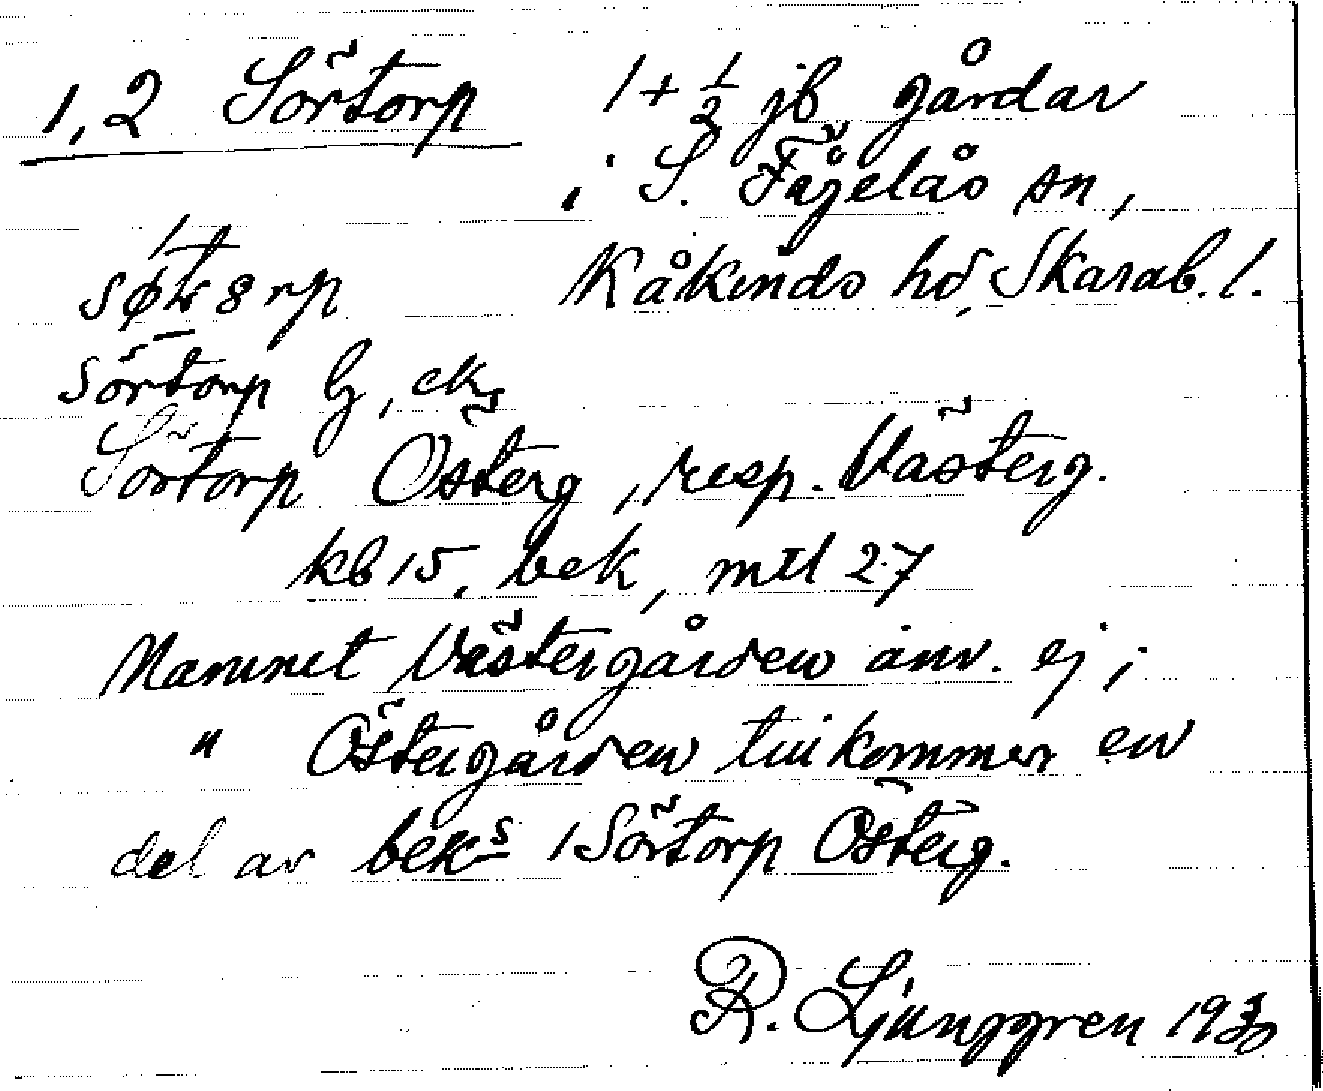 1,2 Sörtorp 1 + 1/2 jb. gårdar
i S. Fågelås sn,
Kåkinds hd, Skarab. l.
Sörtorp lj, ek,
Sörtorp Österg, resp. Västerg.
kb 15, bek, mtl 27
Namnet Västergården anv. ej;
" Östergården tillkommer en
del av bek:s 1 Sörtorp Österg.
R. Ljunggren 1930